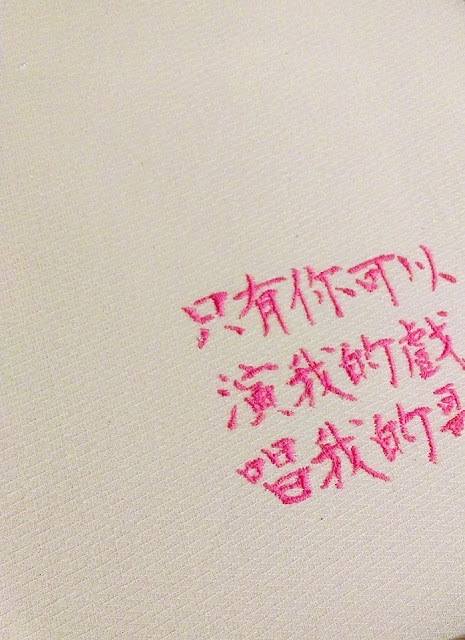 只有你可以
演我的戲
唱我的